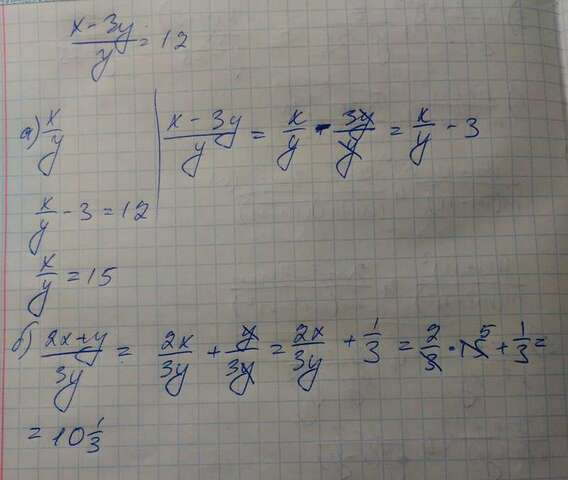 x - 3y / y = 12
а) x/y
x - 3y / y = x/y - 3y/y = x/y - 3
x/y - 3 = 12
x/y = 15
б) 2x+y / 3y = 2x/3y + y/3y = 2x/3y + 1/3 = 2/3 · 15 5 + 1/3 =
= 10 1/3